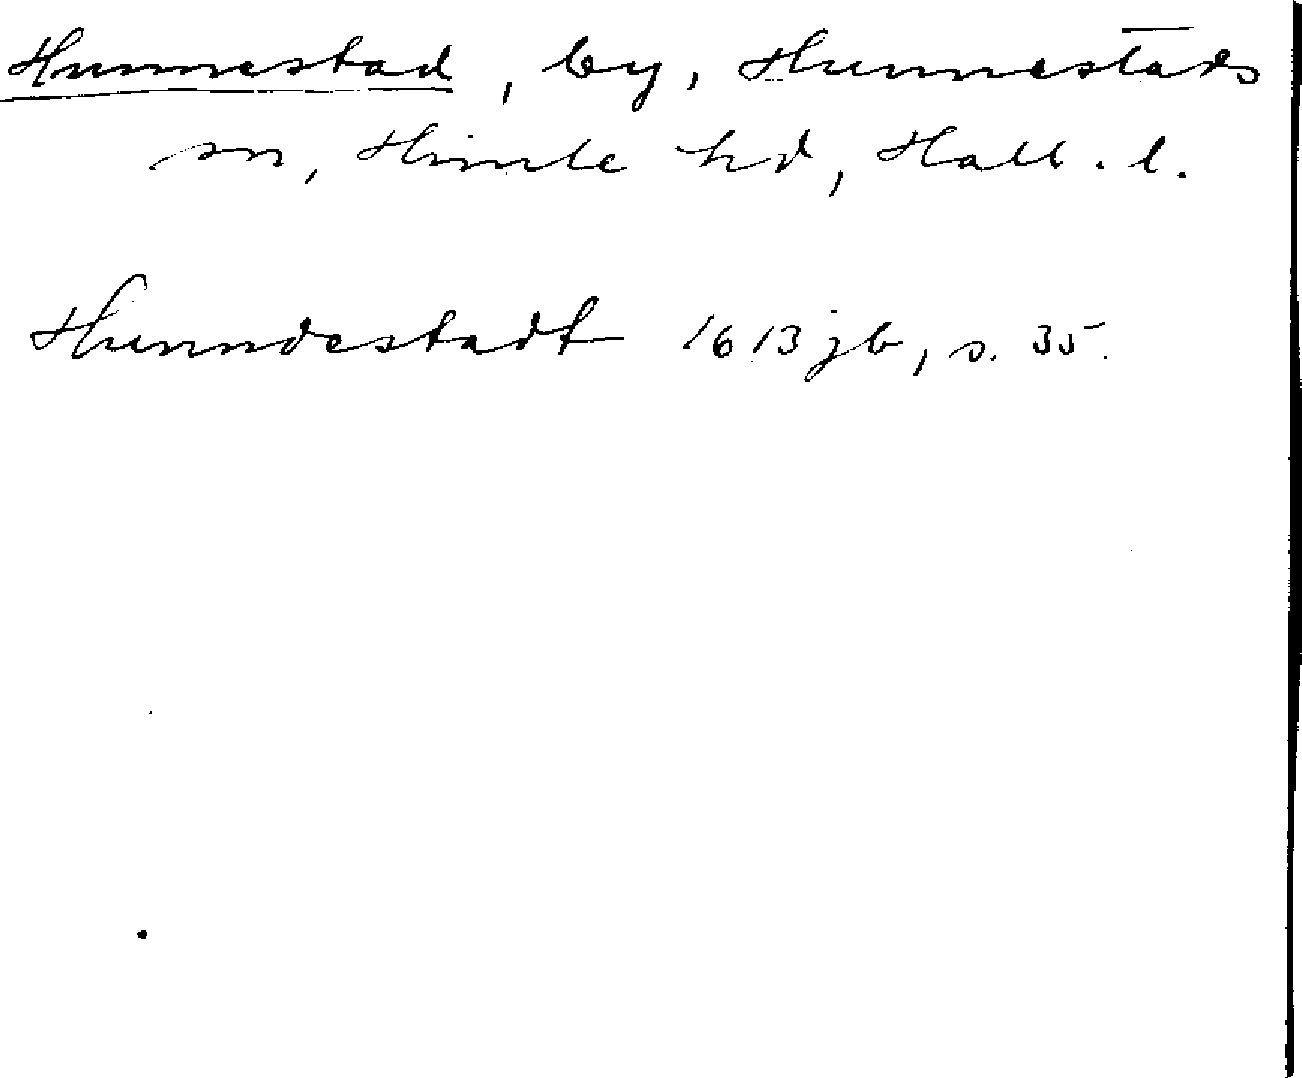 Hunnestad, by, Hunnestads
sn, Himle hd, Hall. l.
Hunndestadt 1613 jb, s. 35.